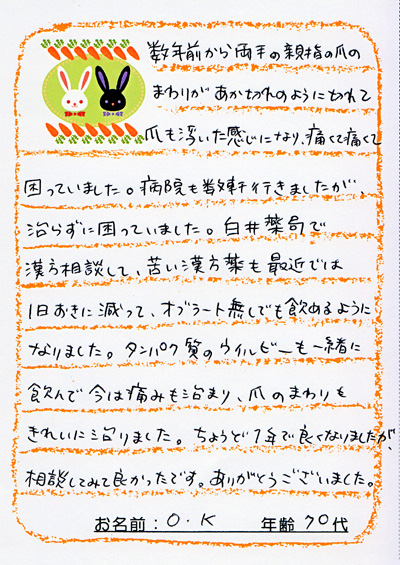 数年前から両手の親指の爪の
まわりがあか切れのように切れて
爪も浮いた感じになり、痛くて痛くて
困っていました。病院も数軒行きましたが、
治らずに困っていました。白井薬局で
漢方相談して、苦い漢方薬も最近では
1日おきに減って、オブラート無しでも飲めるように
なりました。タンパク質のウイルビーも一緒に
飲んで今は痛みも治まり、爪のまわりも
きれいに治りました。ちょうど1年で良くなりましたが、
相談してみて良かったです。ありがとうございました。
お名前：O.K 年齢70代